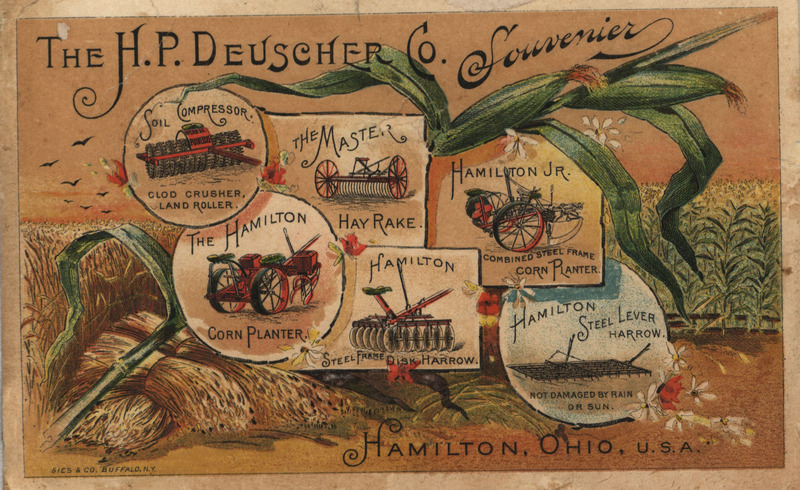 THE H.P. DEUSCHER CO. Souvenier
SOIL COMPRESSOR.
CLOD CRUSHER,
LAND ROLLER.
THE MASTER
HAY RAKE.
HAMILTON JR.
COMBINED STEEL FRAME
CORN PLANTER.
THE HAMILTON
CORN PLANTER.
HAMILTON
STEEL FRAME DISK HARROW.
HAMILTON
STEEL LEVER
HARROW.
NOT DAMAGED BY RAIN
OR SUN.
HAMILTON, OHIO, U.S.A.
GIES & CO. BUFFALO, N.Y.